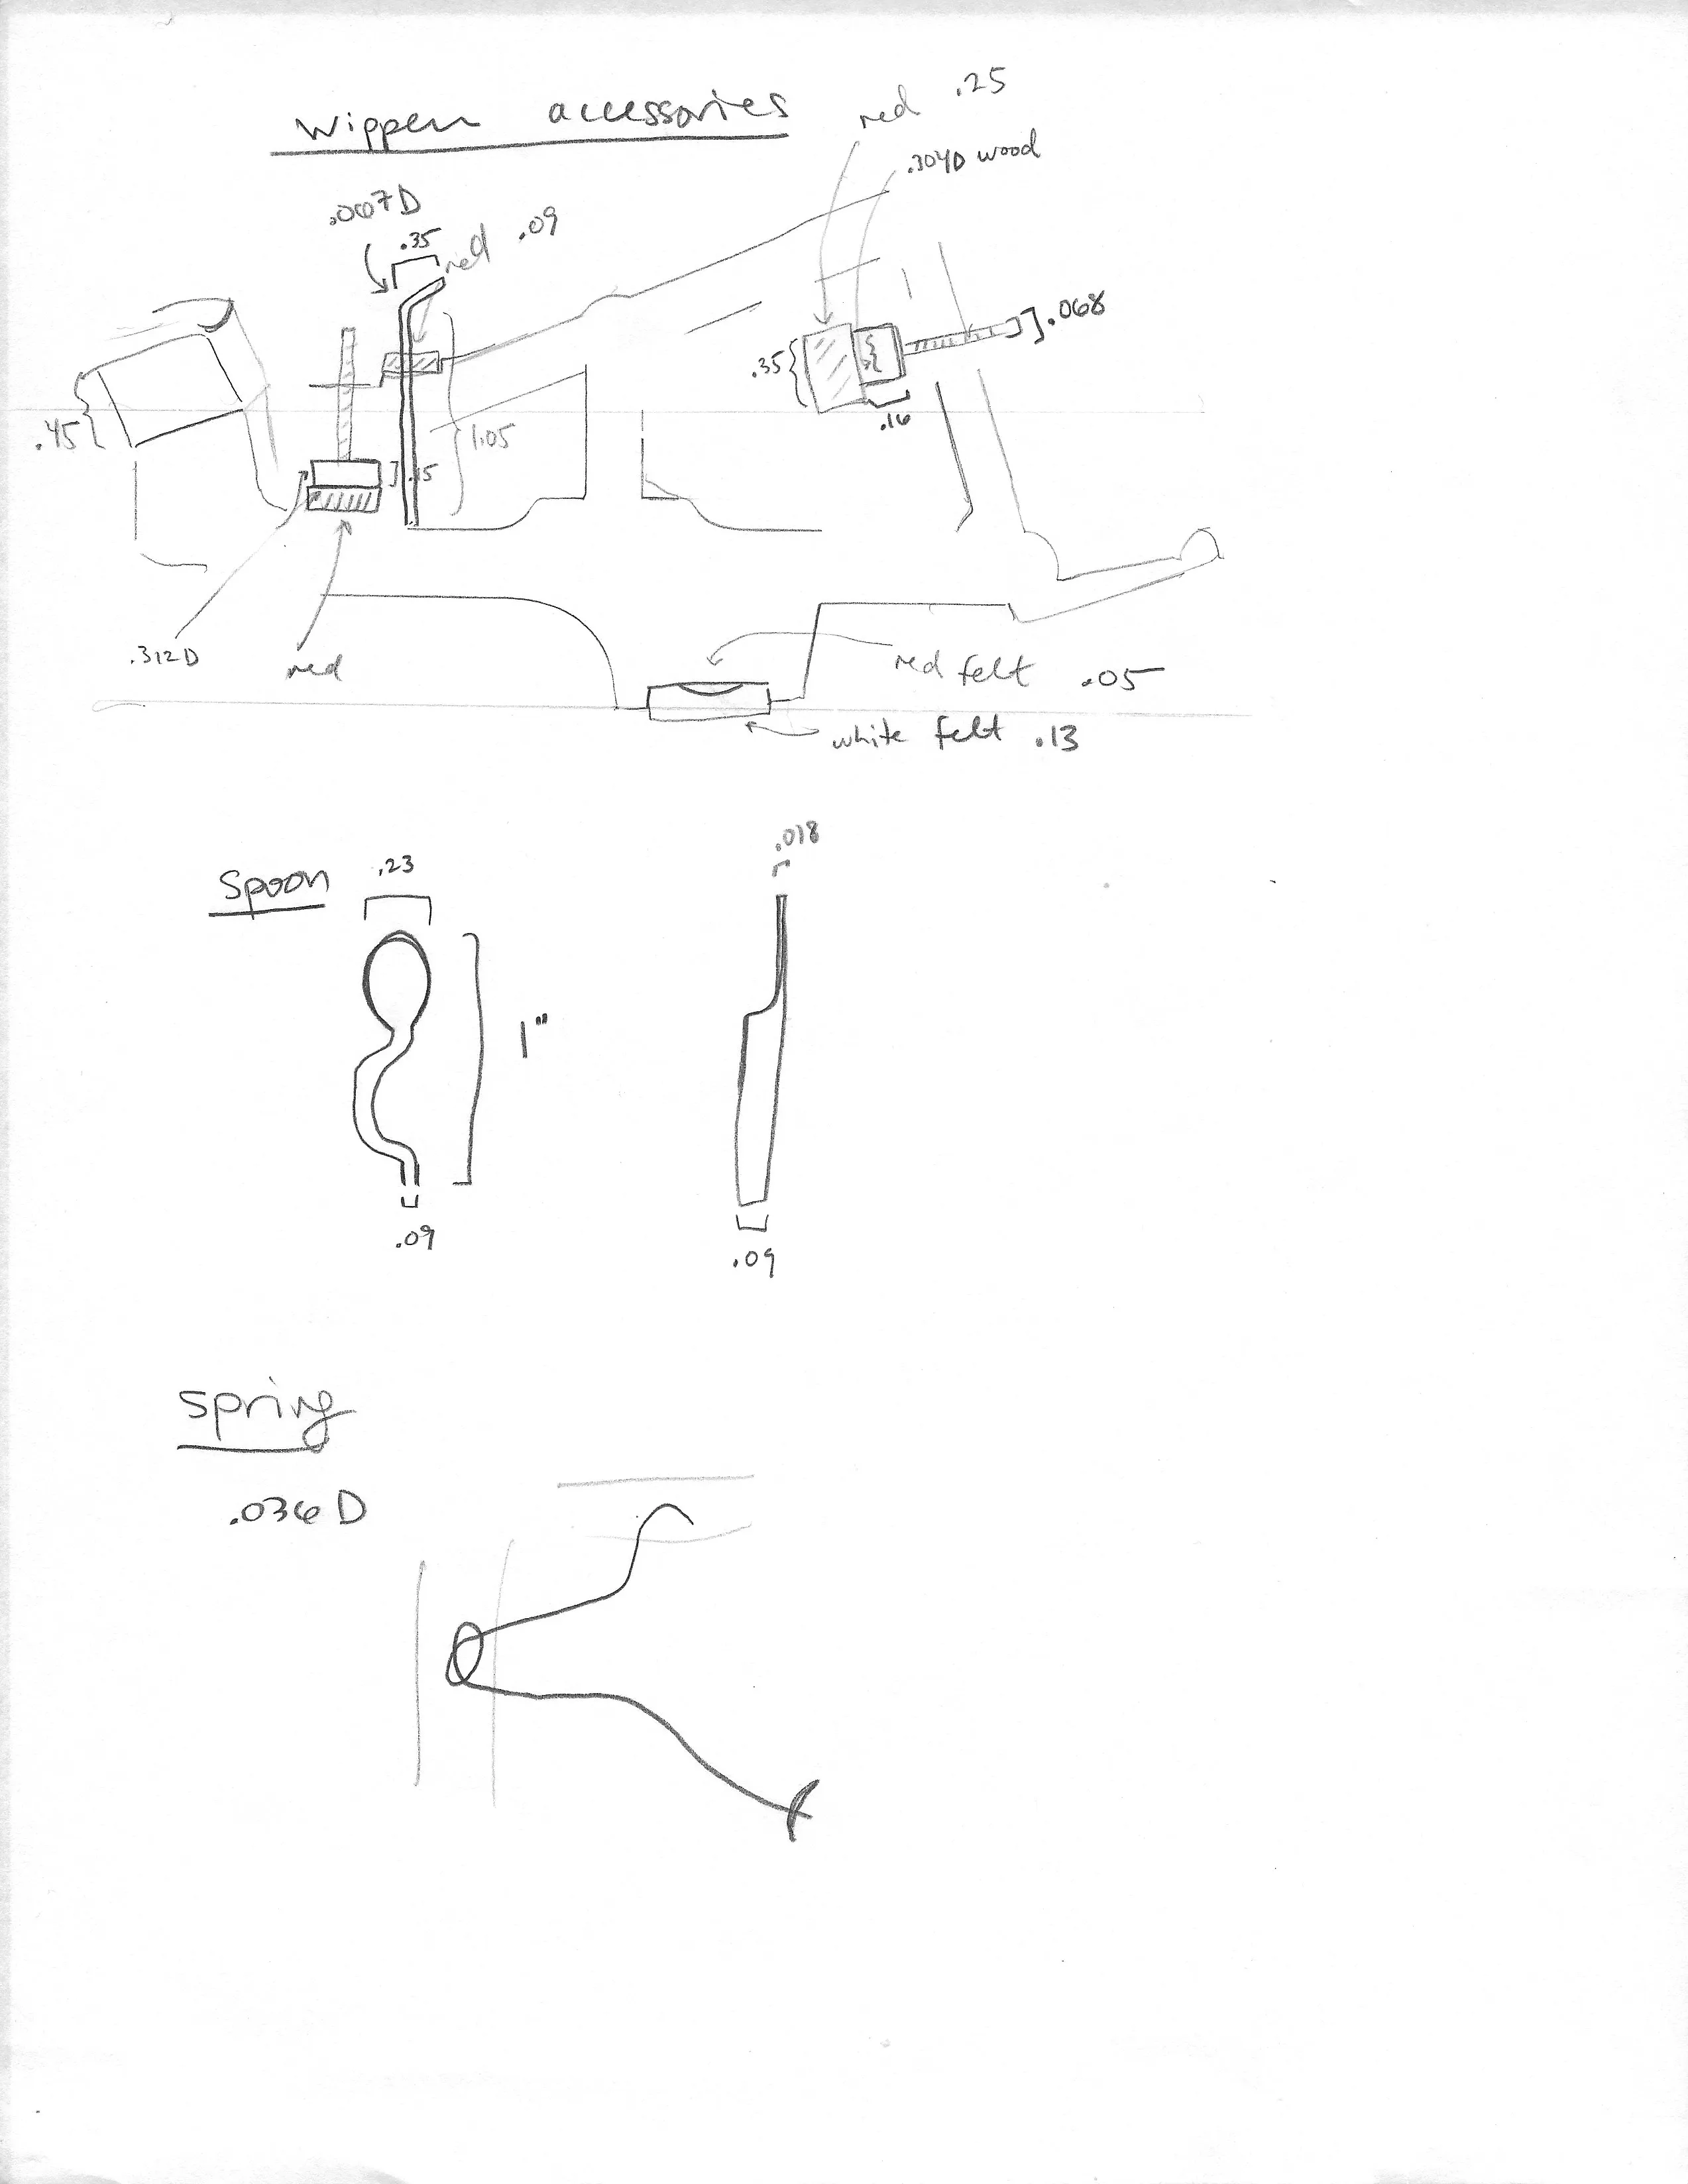 Wippen accessories
red .25
.304D wood
.067D
.35
red .09
.068
.35
.16
.45
1.05
.15
.312D
red
red felt .05
white felt .13
Spoon
.23
.018
1"
.09
.09
Spring
.036D